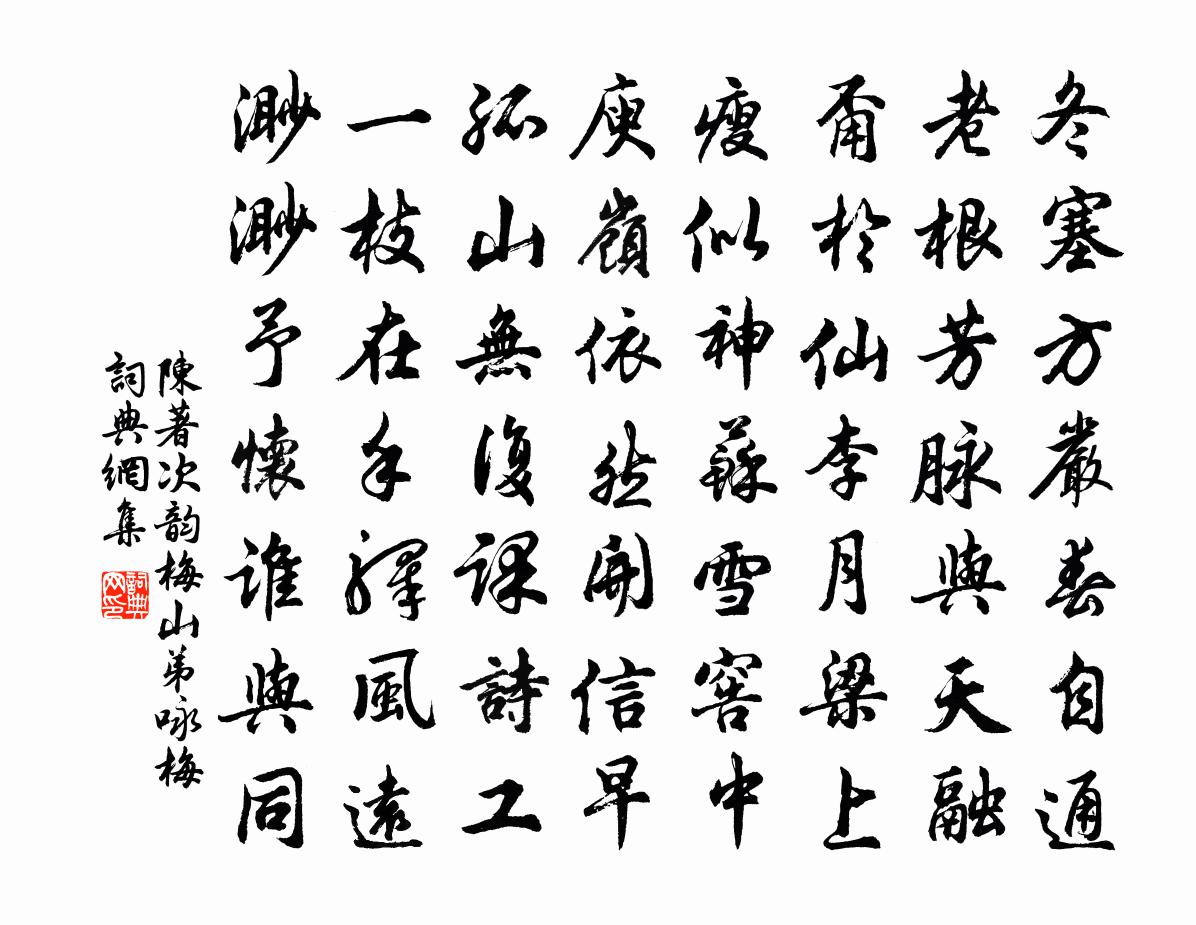 冬塞方嚴春自通
老根芳脉與天融
甭於仙李月梁上
瘦似神蘇雪窖中
庾嶺依然開信早
孤山無復課詩工
一枝在手驛風遠
渺渺予懷誰與同
陳著次韵梅山弟咏梅
詞典網集
詞典网印